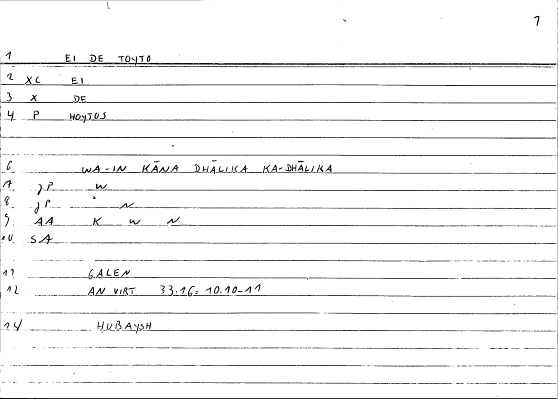 7
1 EI DE TOYTO
2 XC EI
3 X DE
4 P HOYTOS
6 WA-IN KĀNA DHĀLIKA KA-DHĀLIKA
7 JP W
8 JP N
9 AA K W N
10 SA
11 GALEN
12 AN VIRT 33.16: 10.10-11
14 HUBAYSH